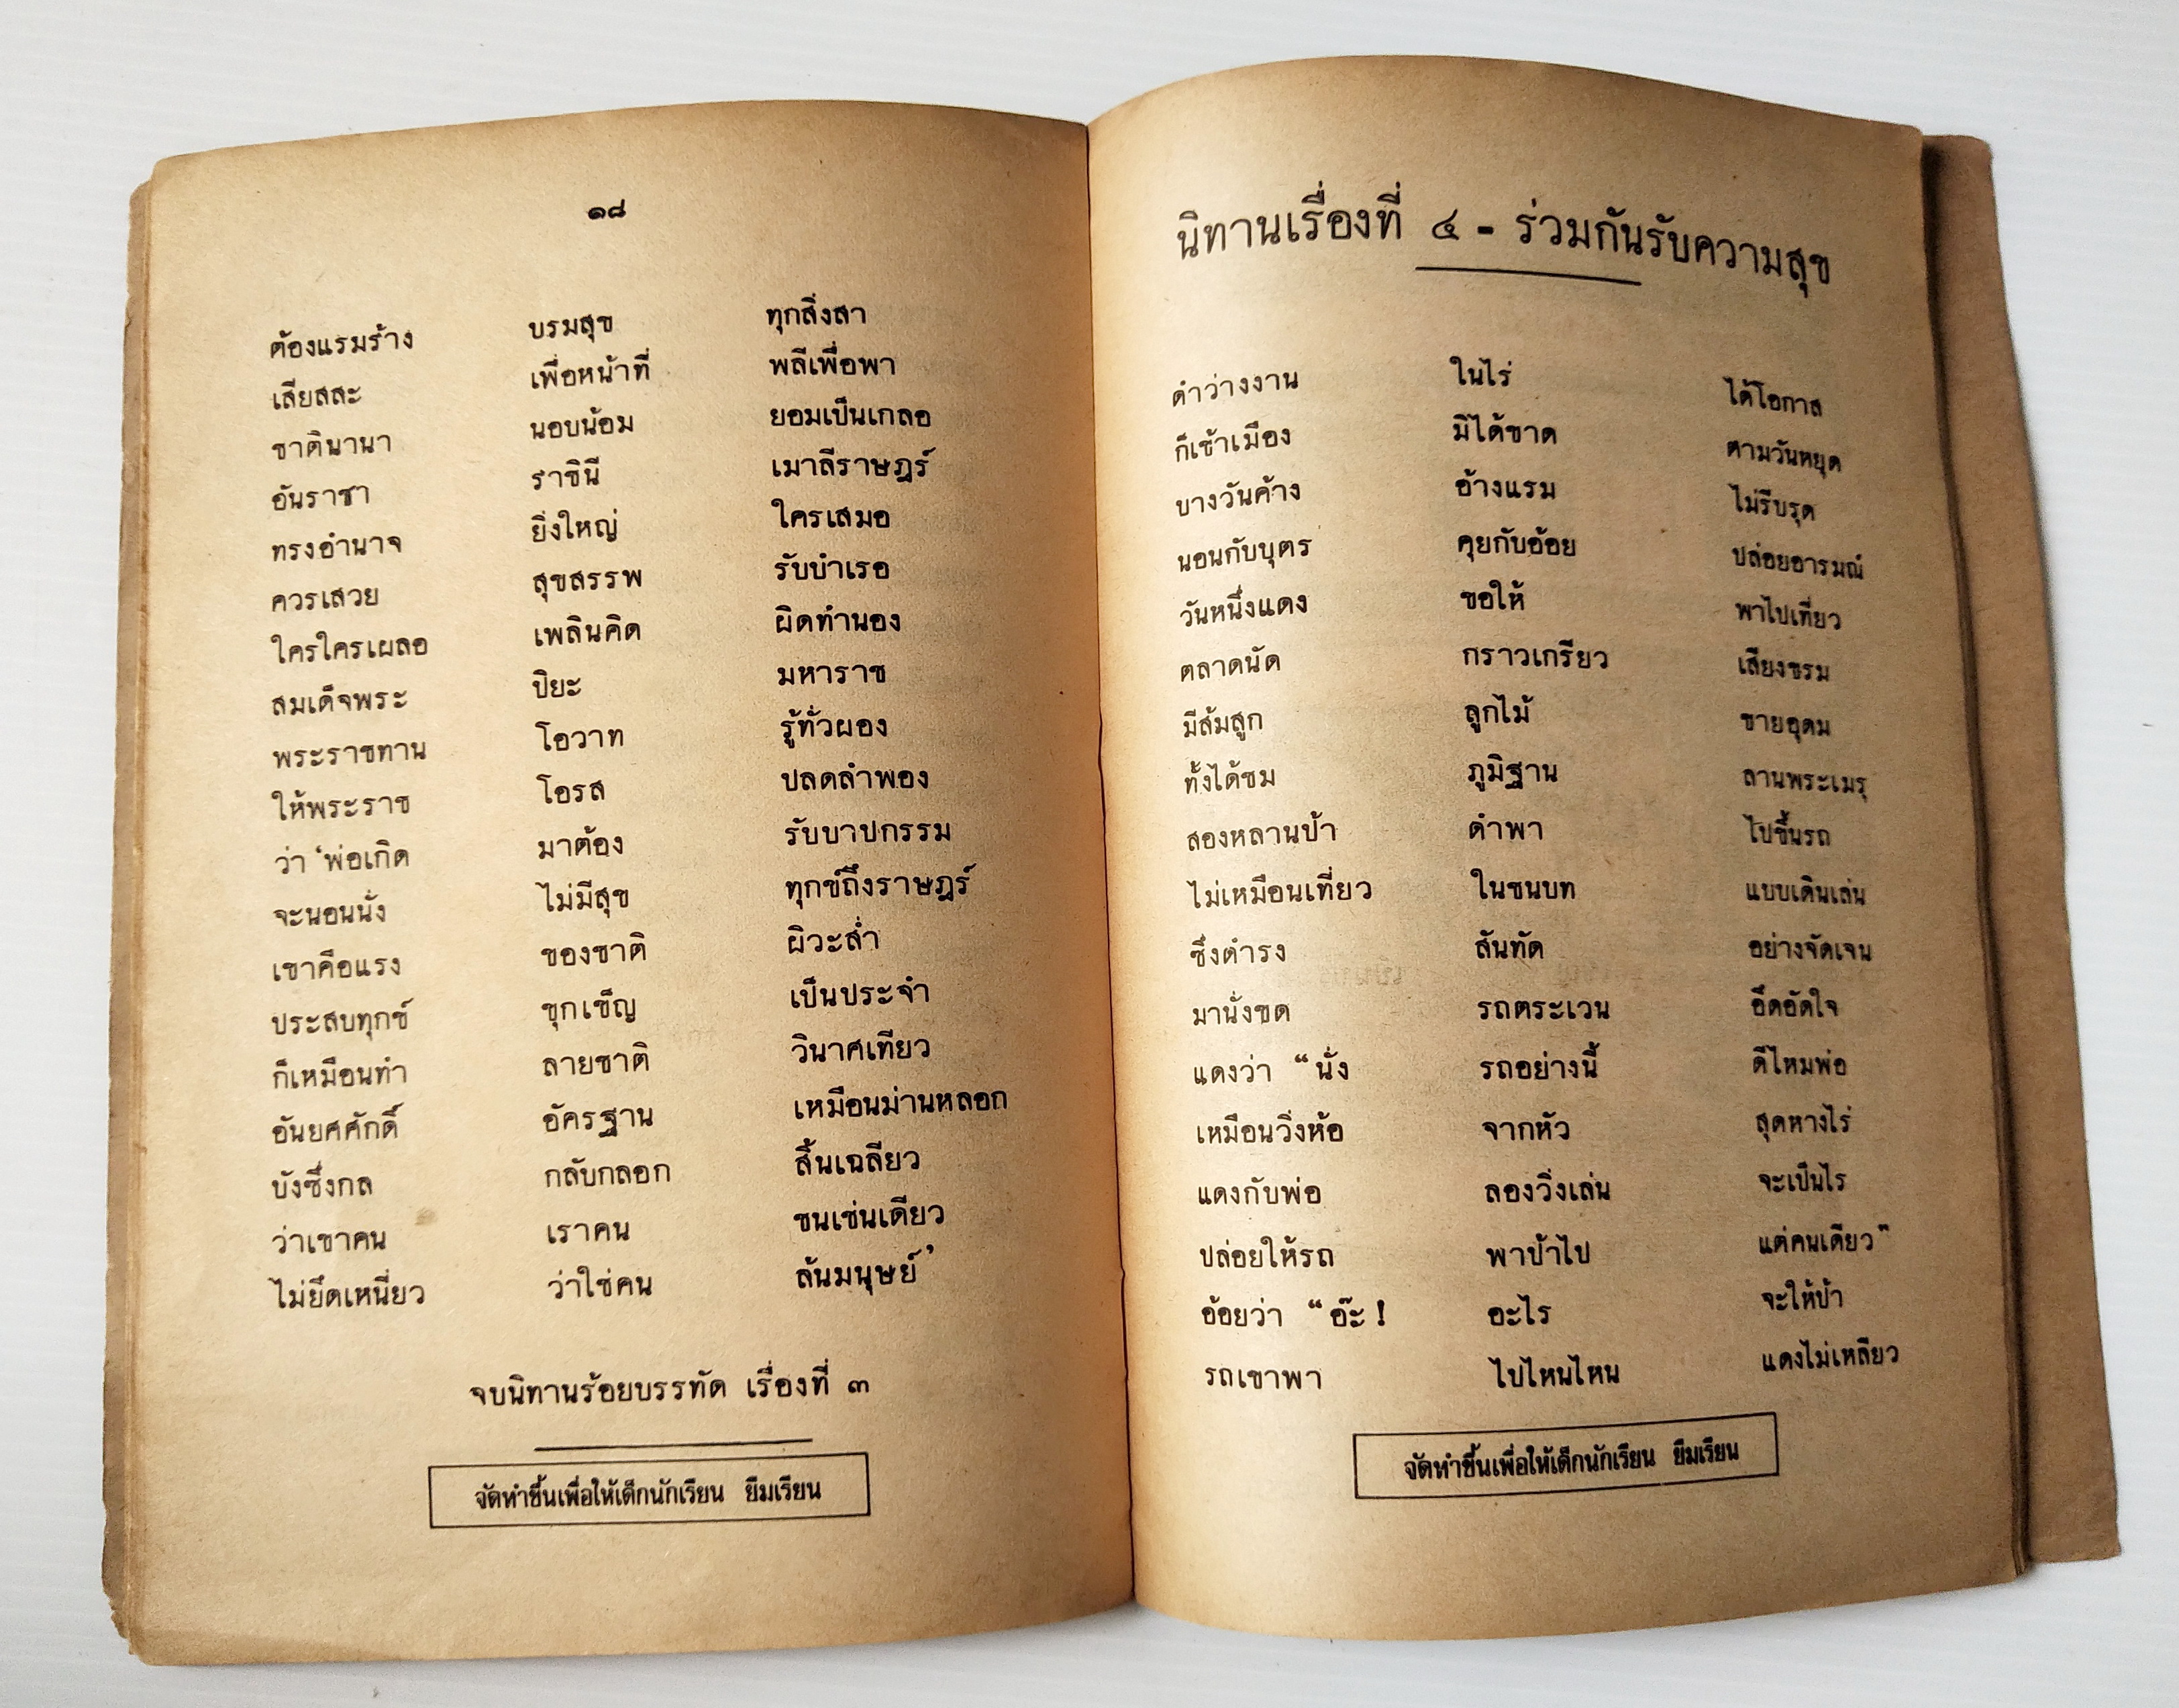 ๑๘
ต้องแรมร้าง บรมสุข ทุกสิ่งสา
เสียสสะ เพื่อหน้าที่ พลีเพื่อพา
ชาตินานา นอบน้อม ยอมเป็นเกลอ
อันราชา ราชินี เมาลีราษฎร์
ทรงอำนาจ ยิ่งใหญ่ ใครเสมอ
ควรเสวย สุขสรรพ รับบำเรอ
ใครใครเผลอ เพลินคิด ผิดทำนอง
สมเด็จพระ ปิยะ มหาราช
พระราชทาน โอวาท รู้ทั่วผอง
ให้พระราช โอรส ปลดลำพอง
ว่า ‘พ่อเกิด มาต้อง รับบาปกรรม
จะนอนนั่ง ไม่มีสุข ทุกข์ถึงราษฎร์
เขาคือแรง ของชาติ ผิวะส่ำ
ประสบทุกข์ ขุกเข็ญ เป็นประจำ
ก็เหมือนทำ ลายชาติ วินาศเทียว
อันยศศักดิ์ อัครฐาน เหมือนม่านหลอก
บังซึ่งกล กลับกลอก สิ้นเฉลียว
ว่าเขาคน เราคน ชนเช่นเดียว
ไม่ยึดเหนี่ยว ว่าใช่คน ล้นมนุษย์’
จบนิทานร้อยบรรทัด เรื่องที่ ๓
จัดทำขึ้นเพื่อให้เด็กนักเรียน ยืมเรียน
นิทานเรื่องที่ ๔ - ร่วมกันรับความสุข
ดำว่างงาน ในไร่ ได้โอกาส
ก็เข้าเมือง มิได้ขาด ตามวันหยุด
บางวันค้าง อ้างแรม ไม่รีบรุด
นอนกับบุตร คุยกับอ้อย ปล่อยอารมณ์
วันหนึ่งแดง ขอให้ พาไปเที่ยว
ตลาดนัด กราวเกรียว เสียงขรม
มีส้มสูก ลูกไม้ ขายอุดม
ทั้งได้ชม ภูมิฐาน ลานพระเมรุ
สองหลานป้า ดำพา ไปขึ้นรถ
ไม่เหมือนเที่ยว ในชนบท แบบเดินเล่น
ซึ่งดำรง สันทัด อย่างจัดเจน
มานั่งขด รถตระเวน อึดอัดใจ
แดงว่า “นั่ง รถอย่างนี้ ดีไหมพ่อ
เหมือนวิ่งห้อ จากหัว สุดหางไร่
แดงกับพ่อ ลองวิ่งเล่น จะเป็นไร
ปล่อยให้รถ พาป้าไป แต่คนเดียว”
อ้อยว่า “อ๊ะ! อะไร จะให้ป้า
รถเขาพา ไปไหนไหน แดงไม่เหลียว
จัดทำขึ้นเพื่อให้เด็กนักเรียน ยืมเรียน